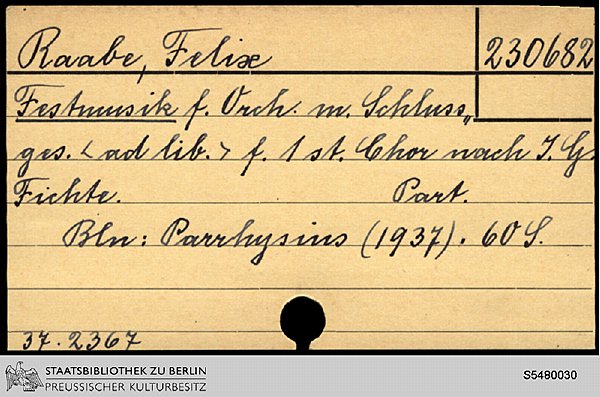 Raabe, Felix
230682
Festmusik f. Orch. m. Schluss„
ges. < ad lib. > f. 1 st. Chor nach J. G.
Fichte. Part.
Bln: Parrhysius (1937). 60 S.
37. 2367
STAATSBIBLIOTHEK ZU BERLIN
PREUSSISCHER KULTURBESITZ
S5480030